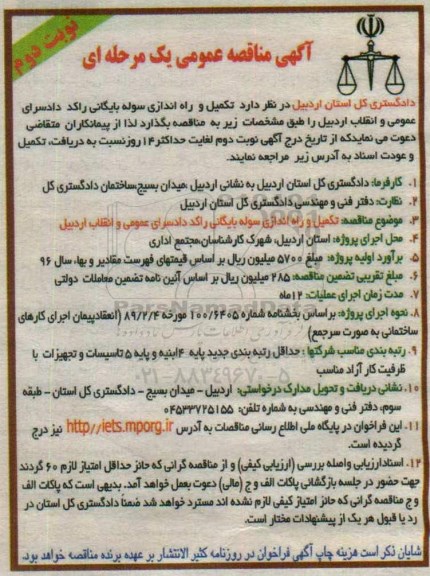 نوبت دوم
آگهی مناقصه عمومی یک مرحله ای
دادگستری کل استان اردبیل در نظر دارد تکمیل و راه اندازی سوله بایگانی راکد دادسرای
عمومی و انقلاب اردبیل را طبق مشخصات زیر به مناقصه بگذارد لذا از پیمانکاران متقاضی
دعوت می نمایدکه از تاریخ درج آگهی نوبت دوم لغایت حداکثر۱۴روزنسبت به دریافت، تکمیل
و عودت اسناد به آدرس زیر مراجعه نمایند.
۱. کارفرما: دادگستری کل استان اردبیل به نشانی اردبیل ،میدان بسیج،ساختمان دادگستری کل
۲. نظارت: دفتر فنی و مهندسی دادگستری کل استان اردبیل
۳. موضوع مناقصه: تکمیل و راه اندازی سوله بایگانی راکد دادسرای عمومی و انقلاب اردبیل
۴. محل اجرای پروژه: استان اردبیل، شهرک کارشناسان،مجتمع اداری
۵. برآورد اولیه پروژه: مبلغ ۵۷۰۰ میلیون ریال بر اساس قیمتهای فهرست مقادیر و بها، سال ۹۶
۶. مبلغ تقریبی تضمین مناقصه: ۲۸۵ میلیون ریال بر اساس آئین نامه تضمین معاملات دولتی
۷. مدت زمان اجرای عملیات: ۱۲ماه
۸. نحوه اجرای پروژه: براساس بخشنامه شماره ۱۰۰/۶۴۰۵ مورخه ۸۹/۲/۴ (انعقادپیمان اجرای کارهای
ساختمانی به صورت سرجمع)
۹. رتبه بندی مناسب شرکتها : حداقل رتبه بندی جدید پایه ۴ابنیه و پایه ۵ تاسیسات و تجهیزات با
ظرفیت کار آزاد مناسب
۱۰. نشانی دریافت و تحویل مدارک درخواستی: اردبیل - میدان بسیج - دادگستری کل استان - طبقه
سوم، دفتر فنی و مهندسی به شماره تلفن: ۰۴۵۳۳۷۲۵۱۵۵
۱۱. این فراخوان در پایگاه ملی اطلاع رسانی مناقصات به آدرس http//iets.mporg.ir نیز درج
گردیده است.
۱۲. اسنادارزیابی واصله بررسی (ارزیابی کیفی) و از مناقصه گرانی که حائز حداقل امتیاز لازم ۶۰ گردند
جهت حضور در جلسه بازگشائی پاکات الف و ج (مالی) دعوت بعمل خواهد آمد. بدیهی است که پاکات الف
و ج مناقصه گرانی که حائز امتیاز کیفی لازم نشده اند مسترد خواهد شد ضمناً دادگستری کل استان در
رد یا قبول هر یک از پیشنهادات مختار است.
شایان ذکر است هزینه چاپ آگهی فراخوان در روزنامه کثیر الانتشار بر عهده برنده مناقصه خواهد بود.
ParsNamadData
۰۲۱-۸۸۳۴۹۶۷۰-۵